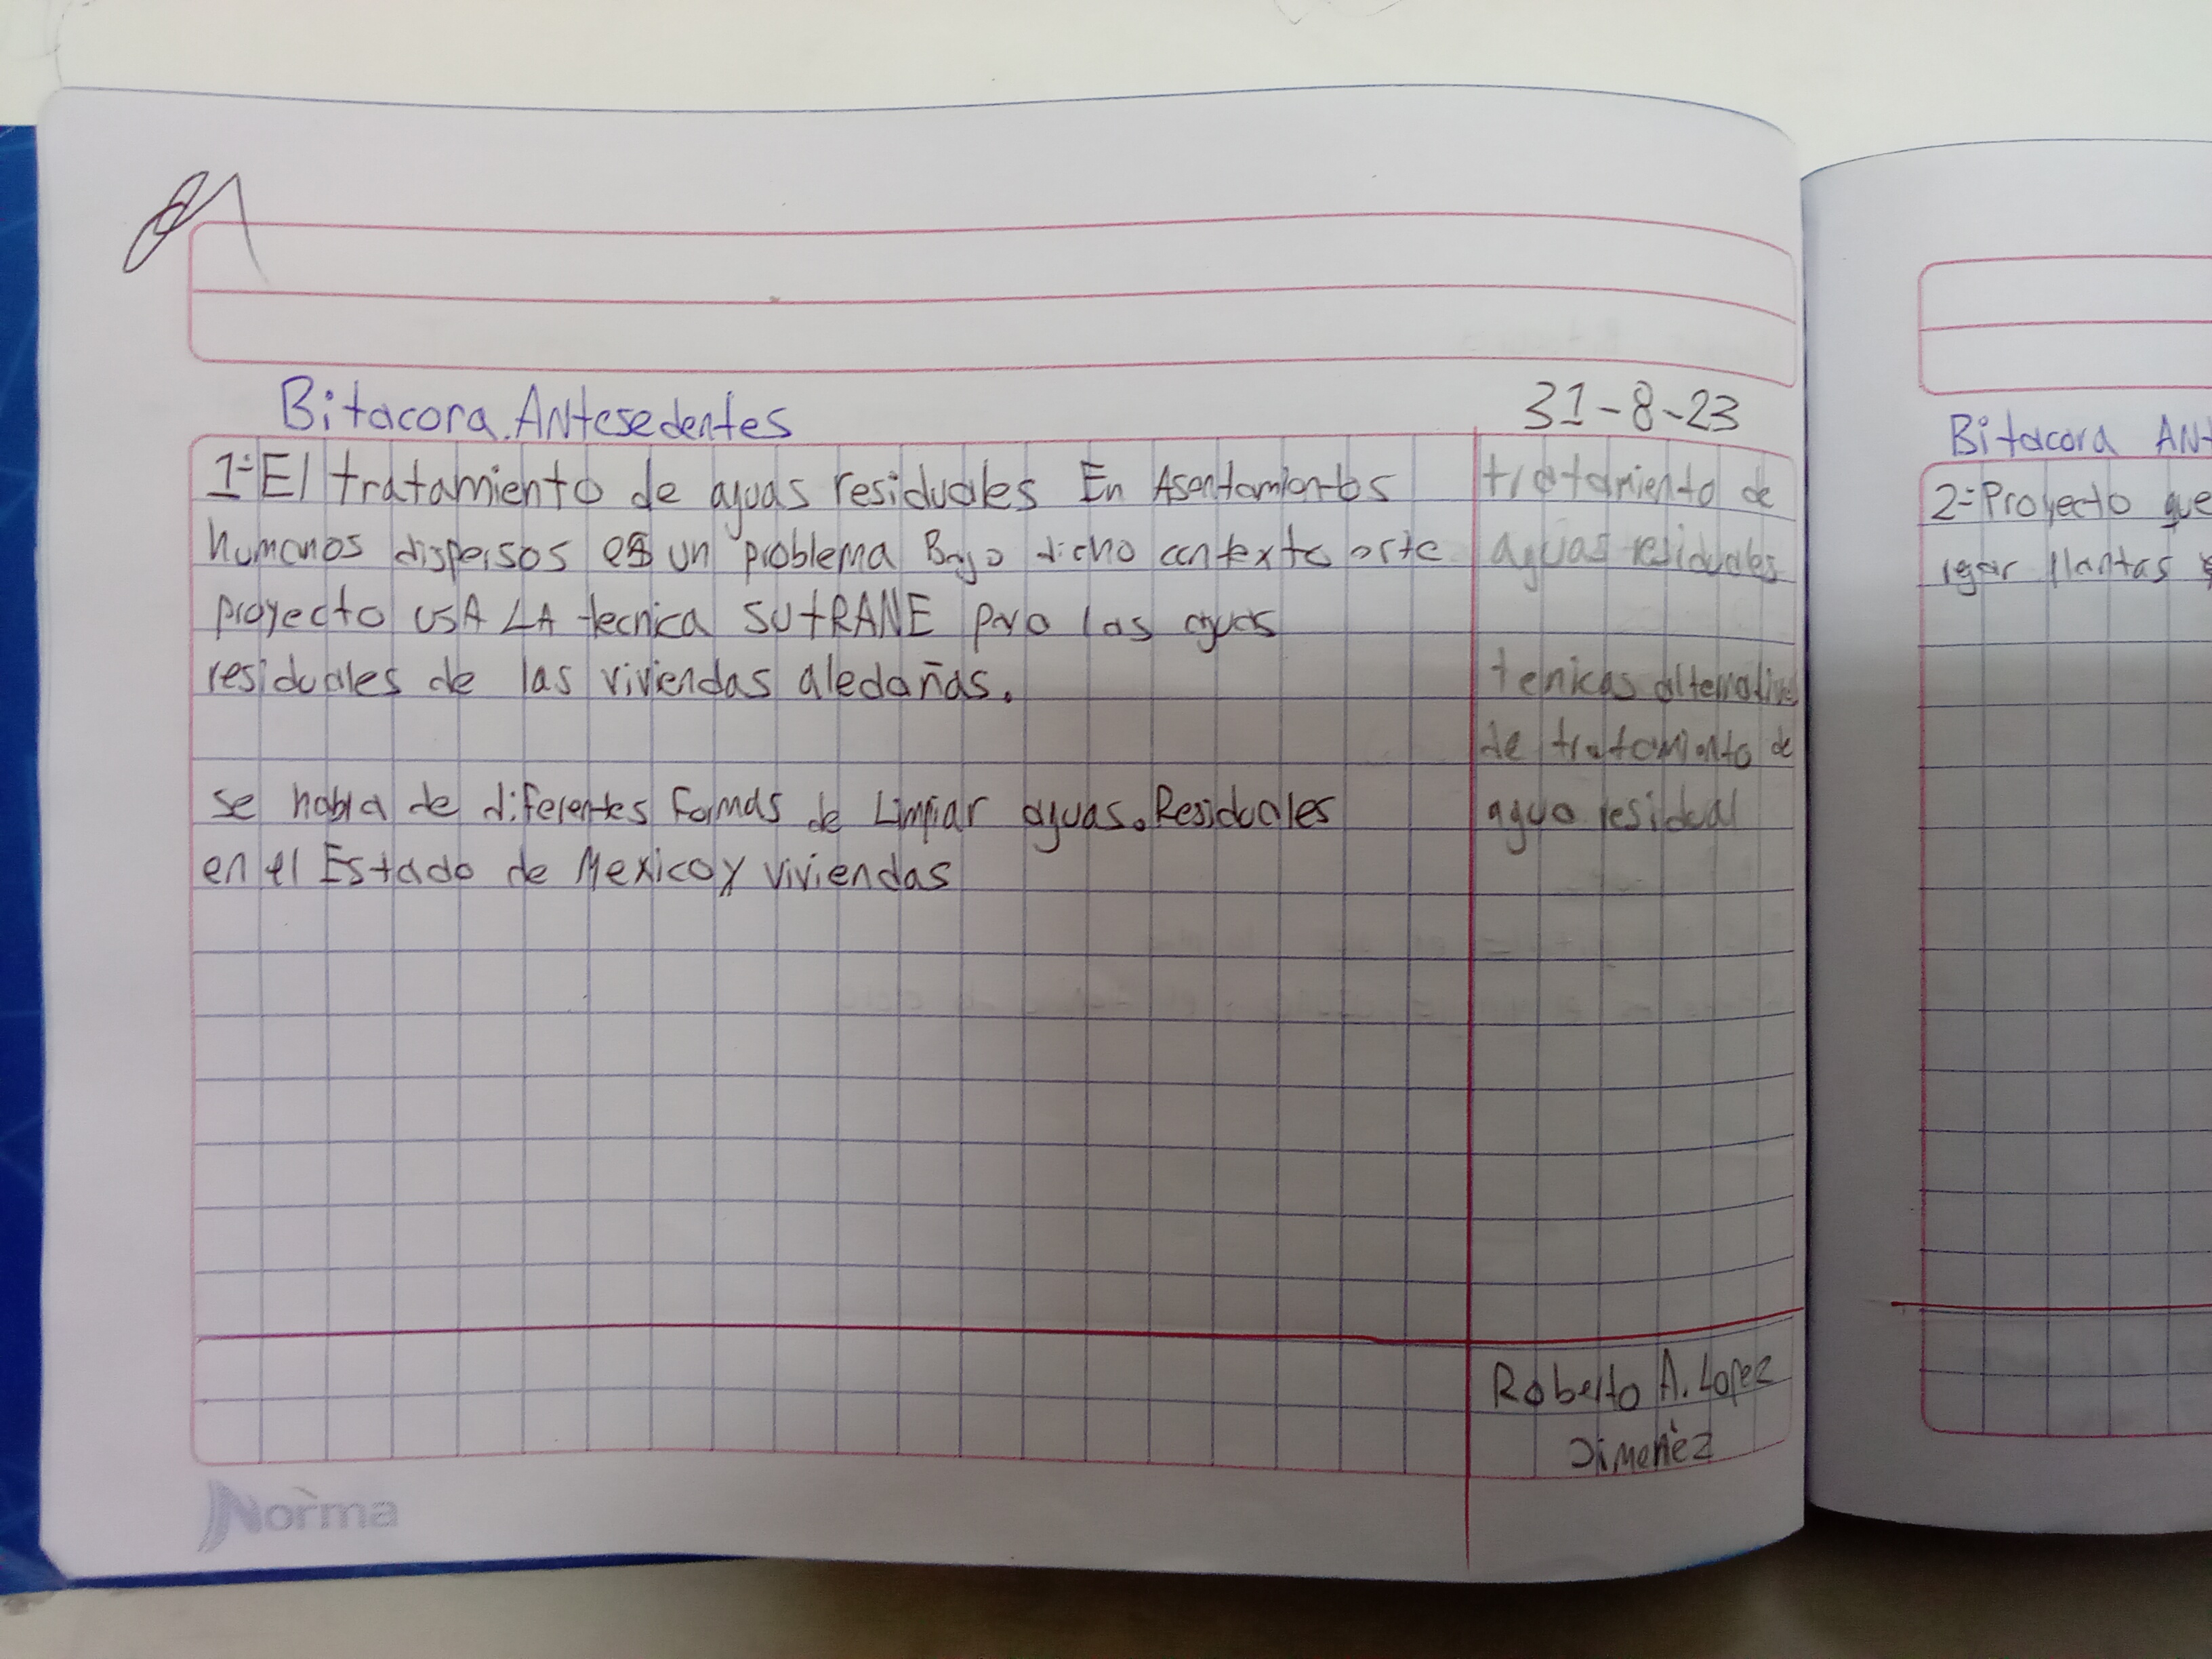 Bitacora. Antesedentes
31-8-23
1=El tratamiento de aguas residuales En Asentamientos
humanos dispersos es un problema Bajo dicho contexto este
proyecto USA LA tecnica SUtRANE para las aguas
residuales de las viviendas aledañas.
se habla de diferentes Formas de Limpiar aguas. Residuales
en el Estado de Mexico y viviendas
tratamiento de
aguas residuales
tenicas alternativas
de tratamiento de
agua residual
Roberto A. Lopez
Jimenez
Norma
Bitacora ANt
2=Proyecto que
llantas